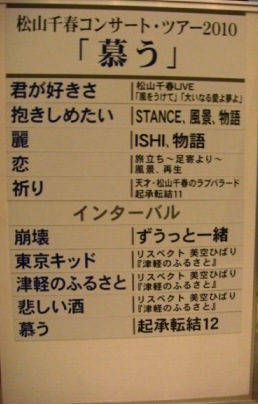 松山千春コンサート・ツアー2010
「慕う」
君が好きさ 松山千春LIVE
「風をうけて」「大いなる愛よ夢よ」
抱きしめたい STANCE、風景、物語
麗 ISHI、物語
恋 旅立ち〜足寄より〜
風景、再生
祈り 天才・松山千春のラブバラード
起承転結11
インターバル
崩壊 ずうっと一緒
東京キッド リスペクト 美空ひばり
『津軽のふるさと』
津軽のふるさと リスペクト 美空ひばり
『津軽のふるさと』
悲しい酒 リスペクト 美空ひばり
『津軽のふるさと』
慕う 起承転結12